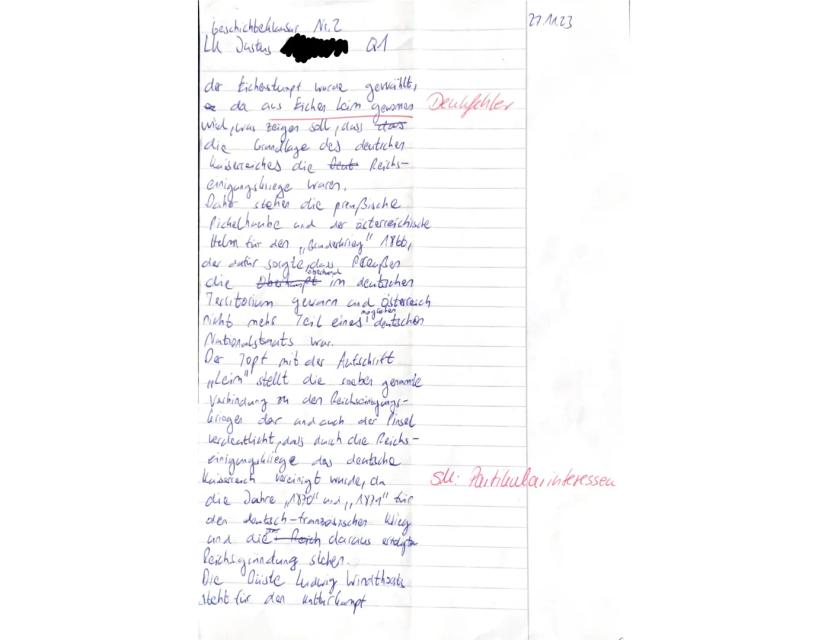 Geschichtsklausur Nr. 2
27.11.23
LK Justus Q1
der Eichenstumpf wurde gewählt,
da aus Eichen Leim gewonnen
Denkfehler
wird, was zeigen soll, dass das
die Grundlage des deutschen
Kaiserreiches die Reichs-
einigungskriege waren.
Daher stehen die preußische
Pickelhaube und der österreichische
Helm für den „Bruderkrieg" 1866,
der dafür sorgte, dass Preußen
die im deutschen
Territorium gewann und Österreich
nicht mehr Teil eines möglichen deutschen
Nationalstaats war.
Der Topf mit der Aufschrift
„Leim" stellt die soeben genannte
Verbindung zu den Reichseinigungs-
kriegen dar und auch der Pinsel
verdeutlicht, dass durch die Reichs-
einigungskriege das deutsche
Kaiserreich vereinigt wurde, da
Partikularinteressen
die Jahre „1870" und „1871" für
den deutsch-französischen Krieg
und die Reich daraus erfolgte
Reichsgründung stehen.
Die Büste Ludwig Windthorsts
steht für den Kulturkampf